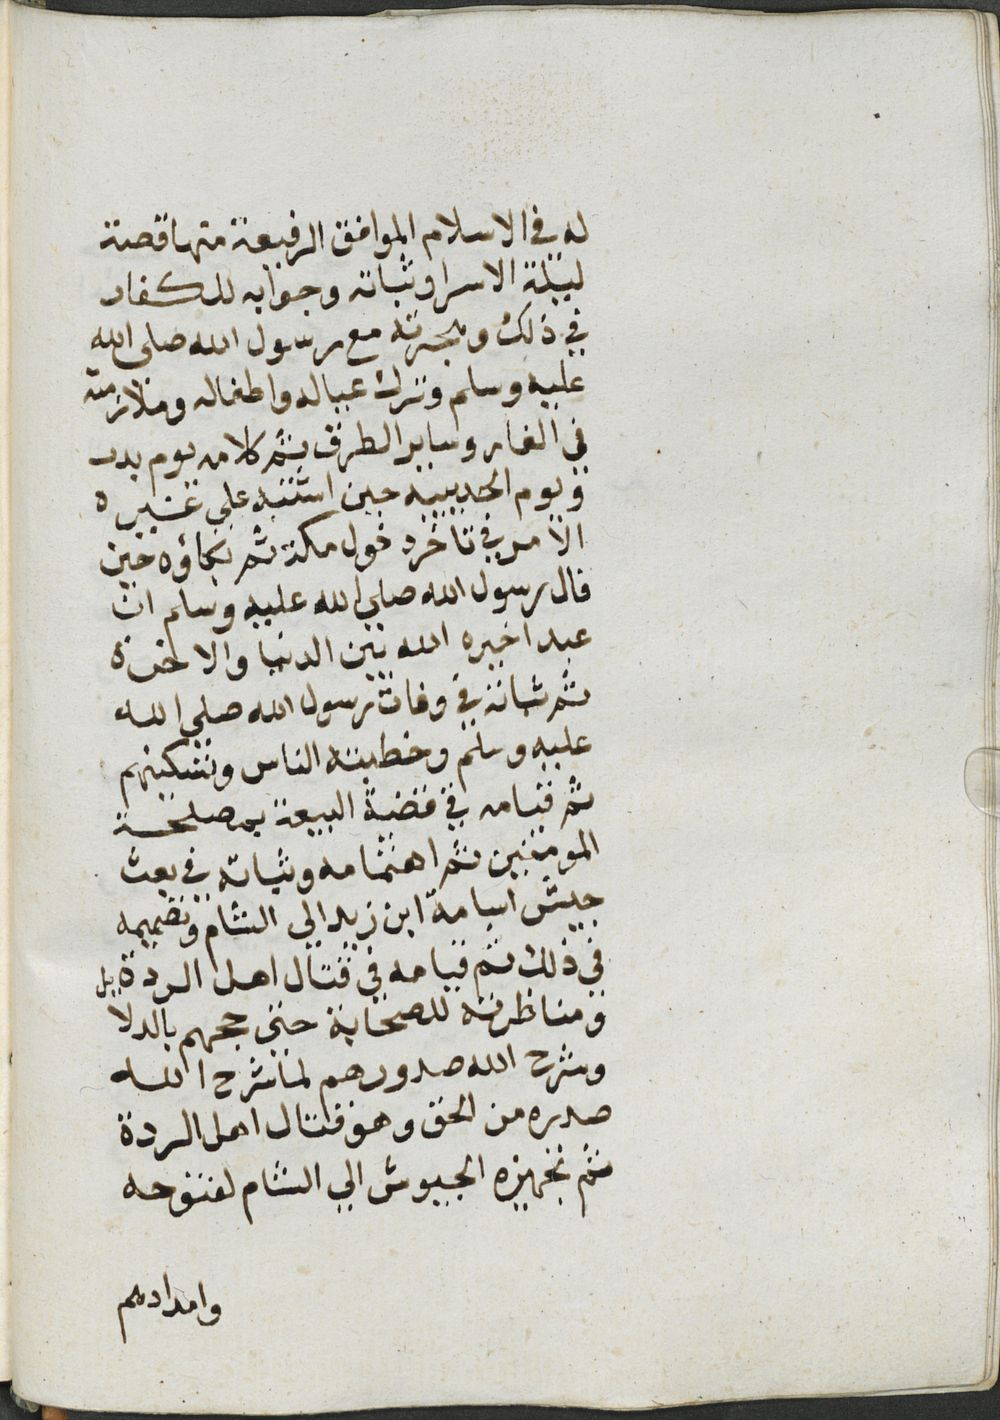 له في الاسلام المواقف الرفيعة منها قصة
ليلة الاسرا وثباته وجوابه للكفار
في ذلك وهجرته مع رسول الله صلى الله
عليه وسلم وترك عياله واطفاله وملازمته
في الغار وساير الطرق ثم كلامه يوم بدر
ويوم الحديبيه حين اشتبه علي غيره
الامر في تاخر دخول مكة ثم بكاؤه حين
قال رسول الله صلي الله عليه وسلم ان
عبدا خيره الله بين الدنيا والاخرة
ثم ثباته في وفات رسول الله صلي الله
عليه وسلم وخطبته الناس وتسكينهم
ثم قيامه في قضية البيعة بمصلحة
المومنين ثم اهتمامه وثباته في بعث
جيش اسامة ابن زيد الي الشام وتصميمه
في ذلك ثم قيامه في قتال اهل الردة
ومناظرته للصحابة حتي حجهم بالدلايل
وشرح الله صدورهم لما شرح الله
صدره من الحق وهو قتال اهل الردة
ثم تجهيزه الجيوش الي الشام لفتوحه
وامدادهم